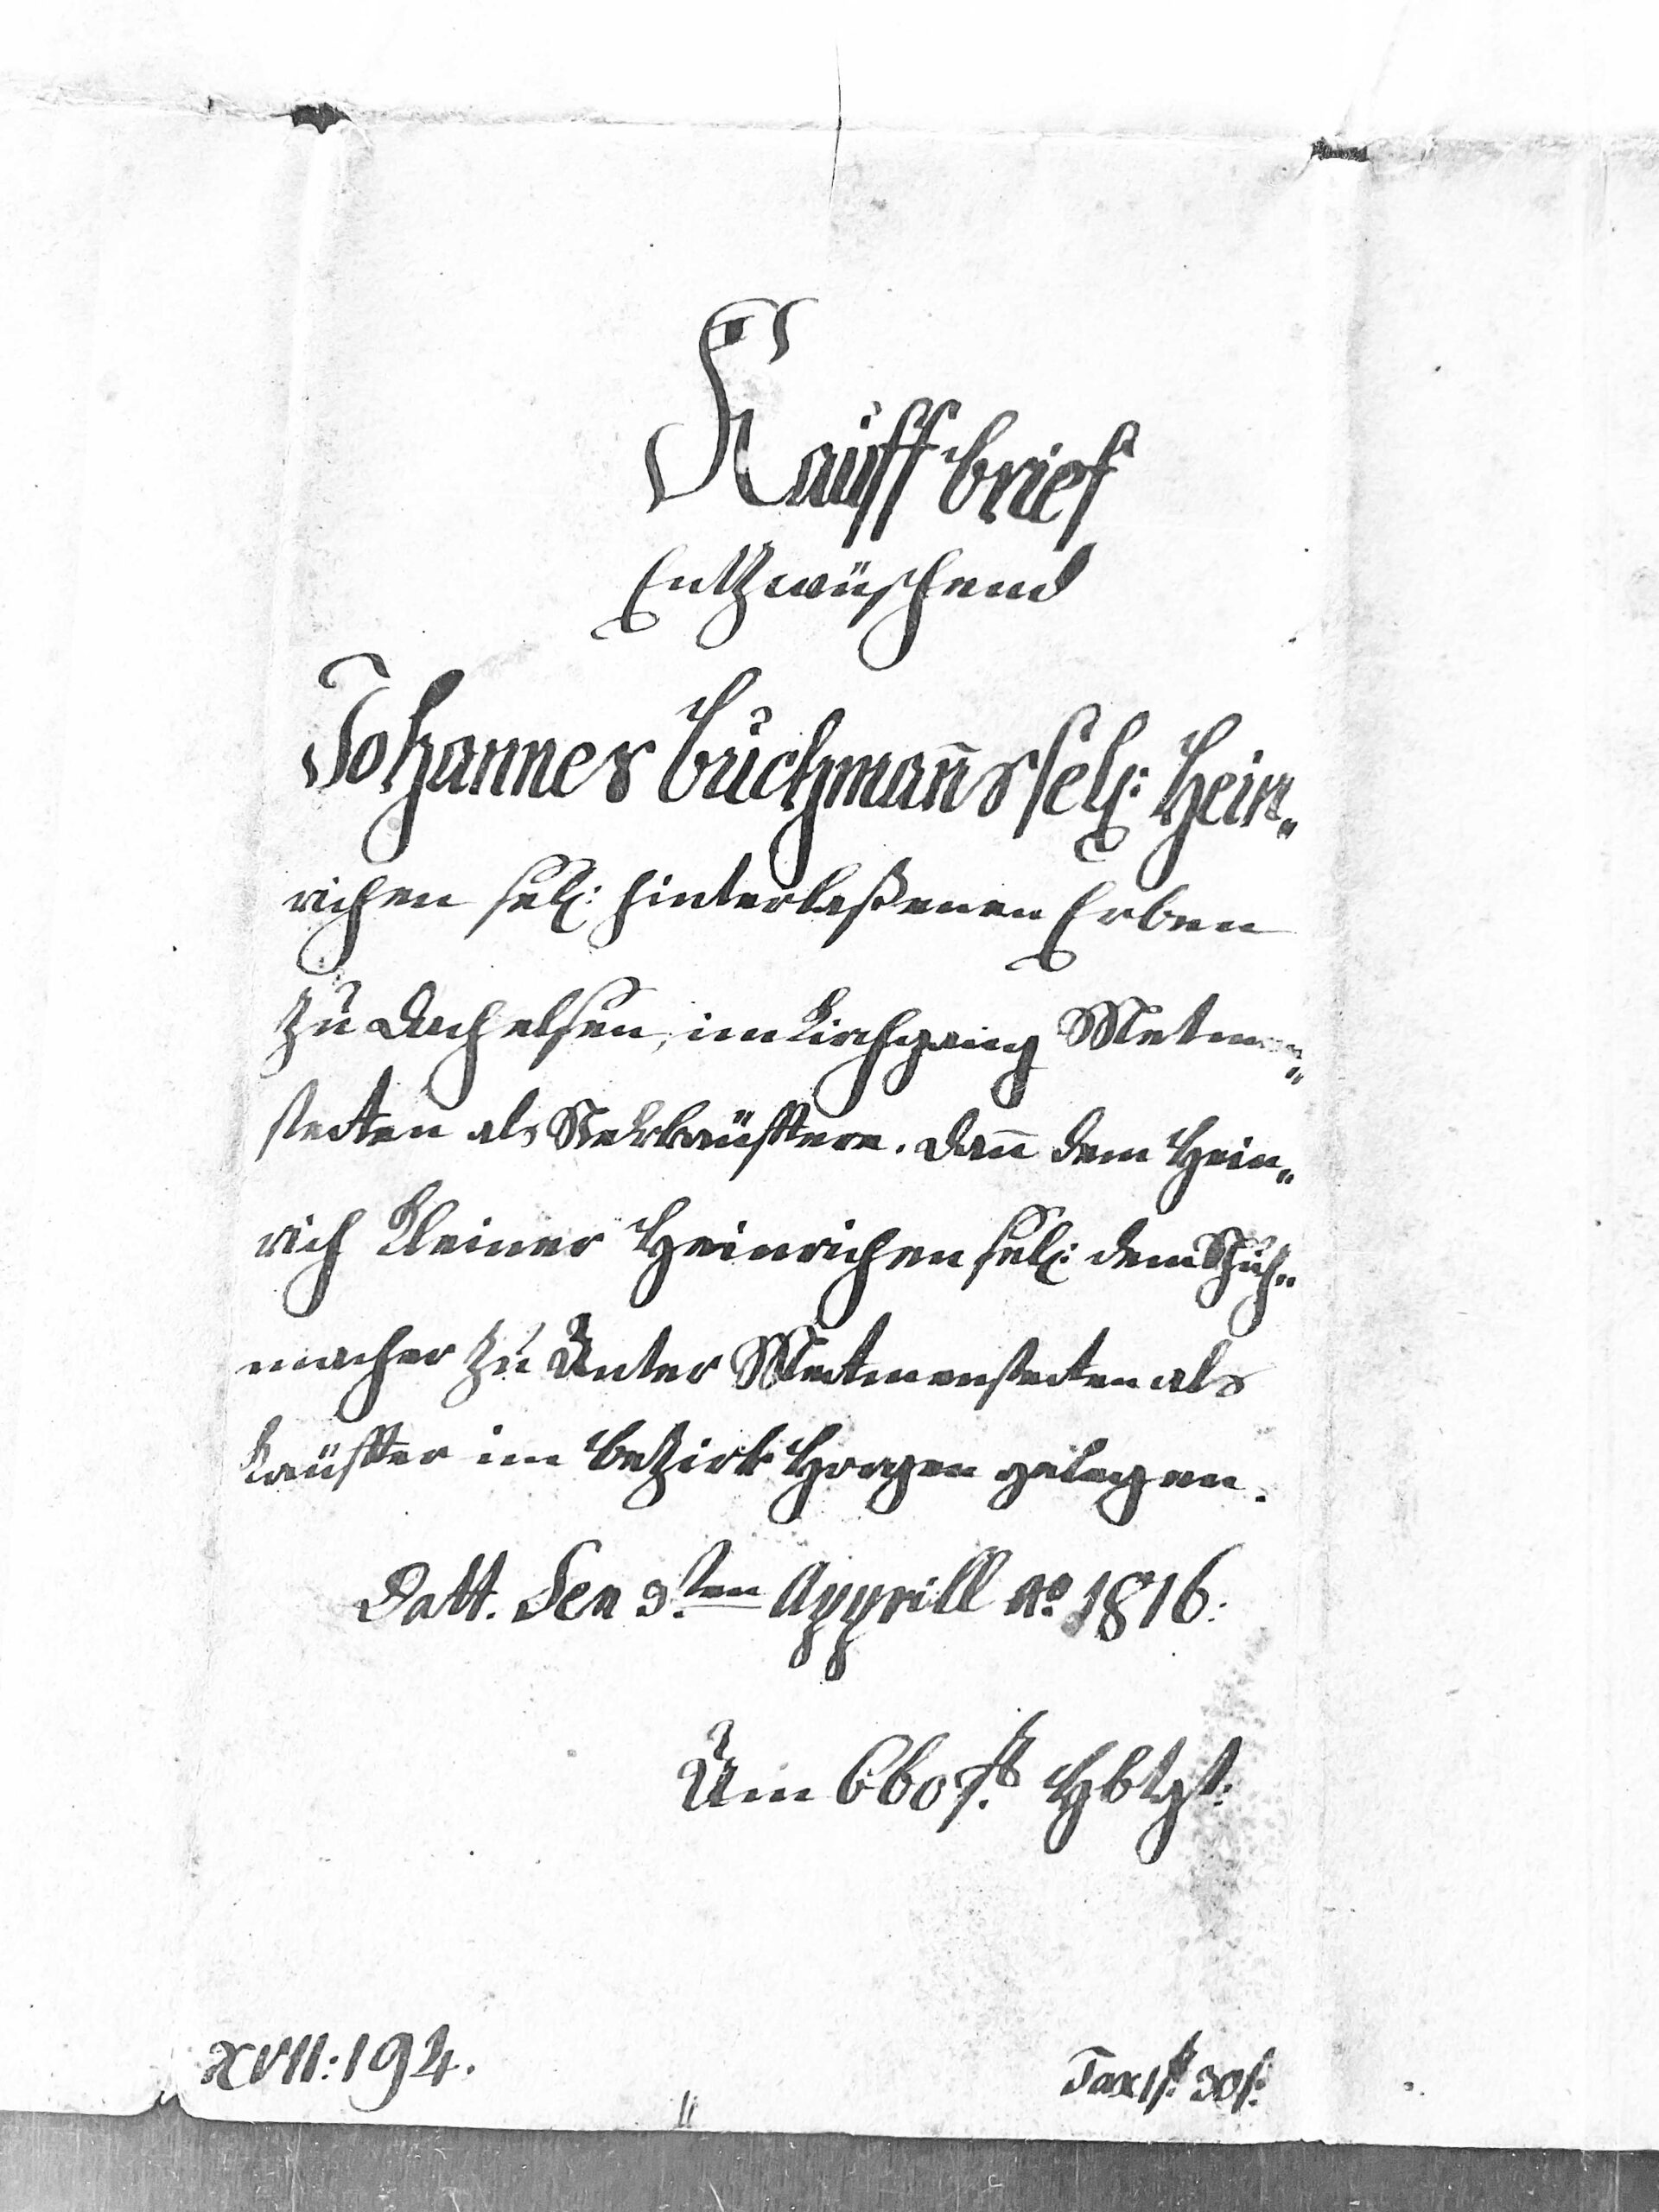 Kauffbrief
Entzwüschend
Johannes Buchmann̄s sel: Hein„
richen sel: hinterlaßenen Erben
zu Dachelsen, im Kirchgang Metmen„
stetten als Verkäuffere. dan̄ dem Hein„
rich Kleiner Heinrichen sel: dem Schuh„
macher zu Unter Mettmenstetten als
Käuffer im Bezirk Horgen gelegen.
Datt. den 3.ten Apprill Aº. 1816.
Um 660 fl. Hbtgt.
XVII: 194.
Tax 1 fl. 30 ß.